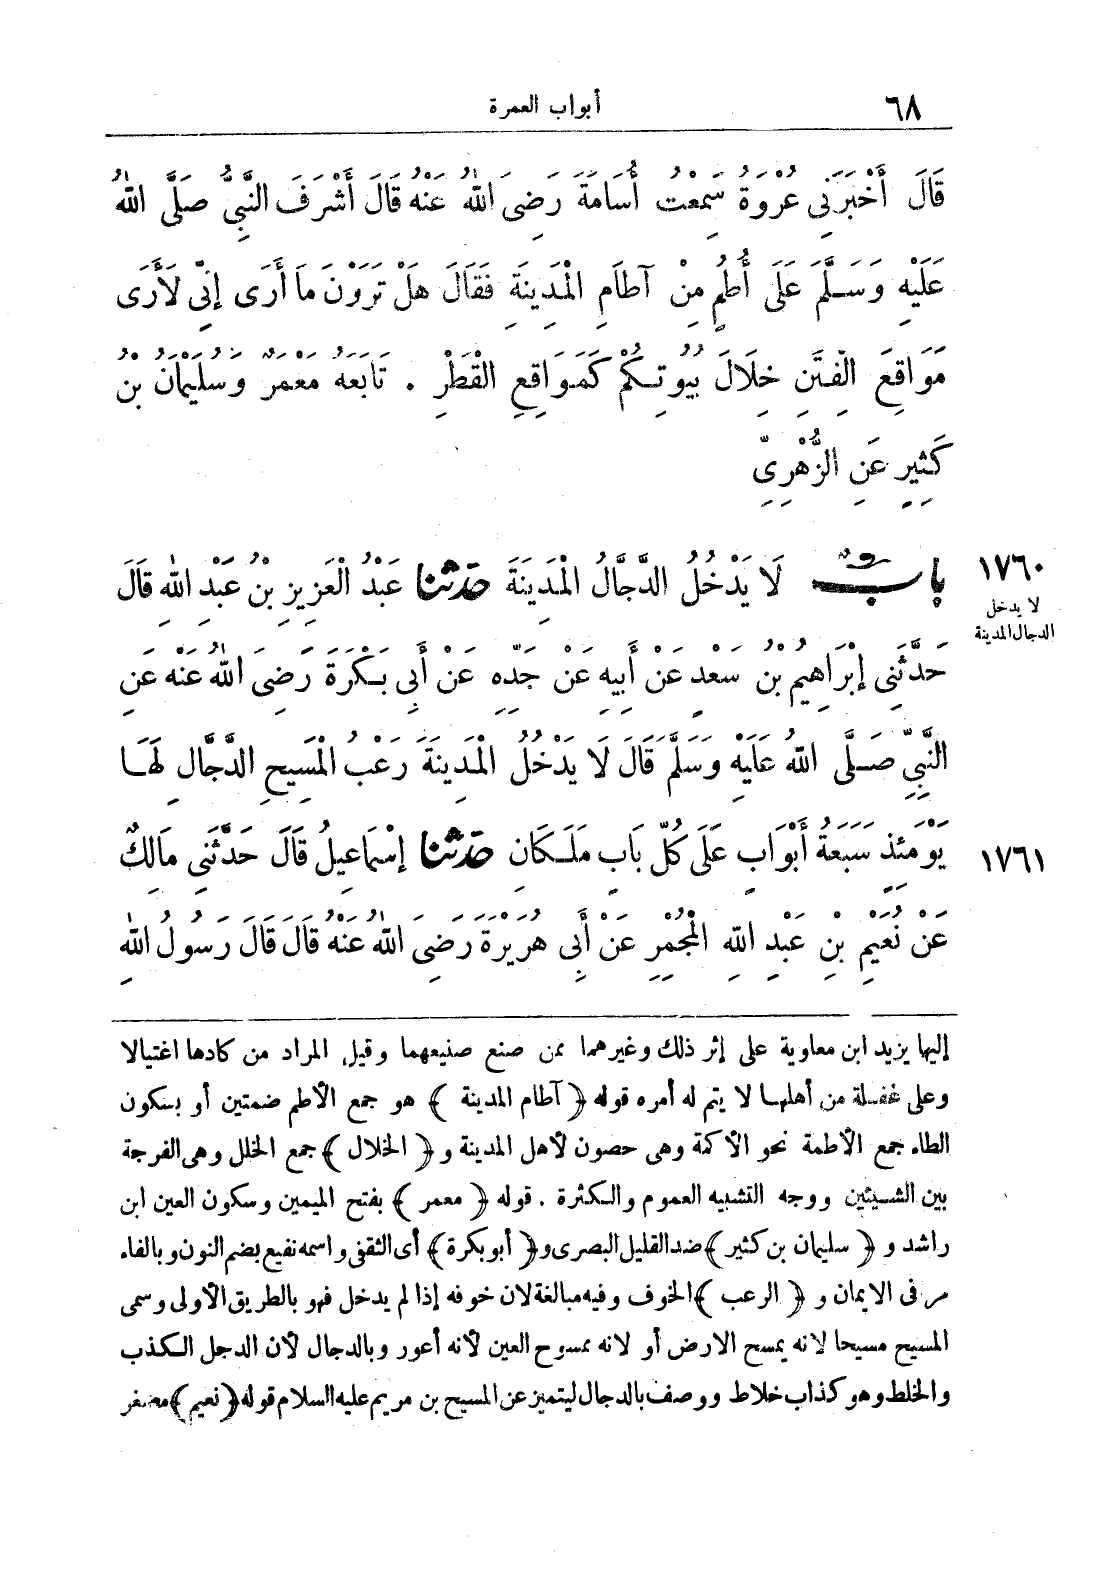 ٦٨ أبواب العمرة
قَالَ أَخْبَرَنِي عُرْوَةُ سَمِعْتُ أُسَامَةَ رَضِيَ اللهُ عَنْهُ قَالَ أَشْرَفَ النَّبِيُّ صَلَّى اللهُ
عَلَيْهِ وَسَلَّمَ عَلَى أُطُمٍ مِنْ آطَامِ الْمَدِينَةِ فَقَالَ هَلْ تَرَوْنَ مَا أَرَى إِنِّي لَأَرَى
مَوَاقِعَ الْفِتَنِ خِلَالَ بُيُوتِكُمْ كَمَوَاقِعِ الْقَطْرِ . تَابَعَهُ مَعْمَرٌ وَسُلَيْمَانُ بْنُ
كَثِيرٍ عَنِ الزُّهْرِيِّ
١٧٦٠
لا يدخل
الدجال المدينة
بَابٌ لَا يَدْخُلُ الدَّجَّالُ الْمَدِينَةَ حَدَّثَنَا عَبْدُ الْعَزِيزِ بْنُ عَبْدِ اللهِ قَالَ
حَدَّثَنِي إِبْرَاهِيمُ بْنُ سَعْدٍ عَنْ أَبِيهِ عَنْ جَدِّهِ عَنْ أَبِي بَكْرَةَ رَضِيَ اللهُ عَنْهُ عَنِ
النَّبِيِّ صَلَّى اللهُ عَلَيْهِ وَسَلَّمَ قَالَ لَا يَدْخُلُ الْمَدِينَةَ رَعْبُ الْمَسِيحِ الدَّجَّالِ لَهَا
١٧٦١ يَوْمَئِذٍ سَبْعَةُ أَبْوَابٍ عَلَى كُلِّ بَابٍ مَلَكَانِ حَدَّثَنَا إِسْمَاعِيلُ قَالَ حَدَّثَنِي مَالِكٌ
عَنْ نُعَيْمِ بْنِ عَبْدِ اللهِ الْمُجْمِرِ عَنْ أَبِي هُرَيْرَةَ رَضِيَ اللهُ عَنْهُ قَالَ قَالَ رَسُولُ اللهِ
إليها يزيد ابن معاوية على إثر ذلك وغيرهما ممن صنع صنيعهما وقيل المراد من كادها اغتيالا
وعلى غفلة من أهلها لا يتم له أمره قوله ﴿ آطام المدينة ﴾ هو جمع الأطم ضمتين أو بسكون
الطاء جمع الأطمة نحو الأكمة وهى حصون لأهل المدينة و ﴿ الخلال ﴾ جمع الخلل وهى الفرجة
بين الشيئين ووجه التشبيه العموم والكثرة . قوله ﴿ معمر ﴾ بفتح الميمين وسكون العين ابن
راشد و ﴿ سليمان بن كثير ﴾ ضد القليل البصرى و ﴿ أبو بكرة ﴾ أى الثقفى واسمه نفيع بضم النون وبالفاء
مر فى الايمان و ﴿ الرعب ﴾ الخوف وفيه مبالغة لان خوفه إذا لم يدخل فهو بالطريق الأولى وسمى
المسيح مسيحا لانه يمسح الارض أو لانه ممسوح العين لأنه أعور وبالدجال لأن الدجل الكذب
والخلط وهو كذاب خلاط ووصف بالدجال ليتميز عن المسيح بن مريم عليه السلام قوله ﴿ نعيم ﴾ مصغر